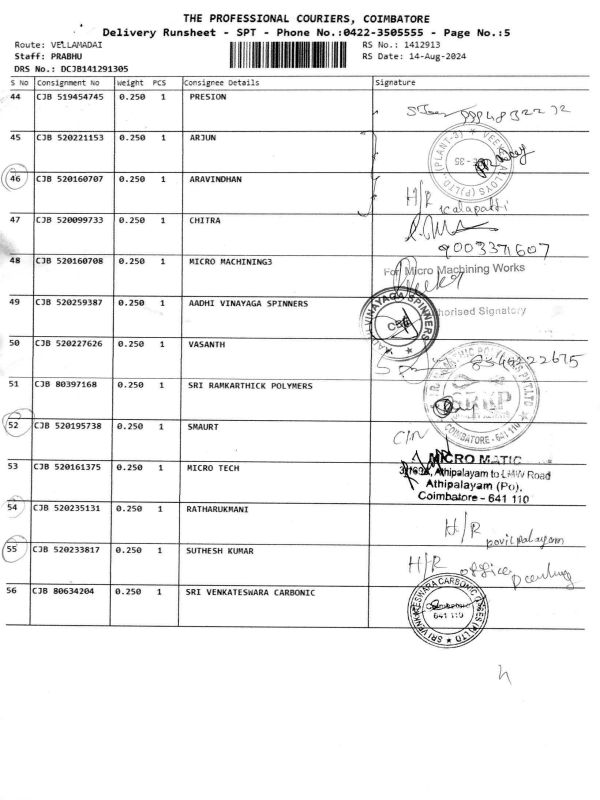 THE PROFESSIONAL COURIERS, COIMBATORE
Delivery Runsheet - SPT - Phone No.:0422-3505555 - Page No.:5
Route: VELLAMADAI RS No.: 1412913
Staff: PRABHU RS Date: 14-Aug-2024
DRS No.: DCJB141291305
S No Consignment No Weight PCS Consignee Details Signature
44 CJB 519454745 0.250 1 PRESION
45 CJB 520221153 0.250 1 ARJUN
(PLANT-3) ALLOYS (P) LTD.
46 CJB 520160707 0.250 1 ARAVINDHAN H/R Kalapatti
47 CJB 520099733 0.250 1 CHITRA
9003371607
48 CJB 520160708 0.250 1 MICRO MACHINING3 For Micro Machining Works
49 CJB 520259387 0.250 1 AADHI VINAYAGA SPINNERS Authorised Signatory
VINAYAGA SPINNERS CBE
50 CJB 520227626 0.250 1 VASANTH
51 CJB 80397168 0.250 1 SRI RAMKARTHICK POLYMERS
SRKP
COIMBATORE - 641 110
52 CJB 520195738 0.250 1 SMAURT
MICRO MATIC
53 CJB 520161375 0.250 1 MICRO TECH Athipalayam to LMW Road
Athipalayam (Po),
Coimbatore - 641 110
54 CJB 520235131 0.250 1 RATHARUKMANI H/R kovilpalayam
55 CJB 520233817 0.250 1 SUTHESH KUMAR H/R office
56 CJB 80634204 0.250 1 SRI VENKATESWARA CARBONIC
Coimbatore
641 110